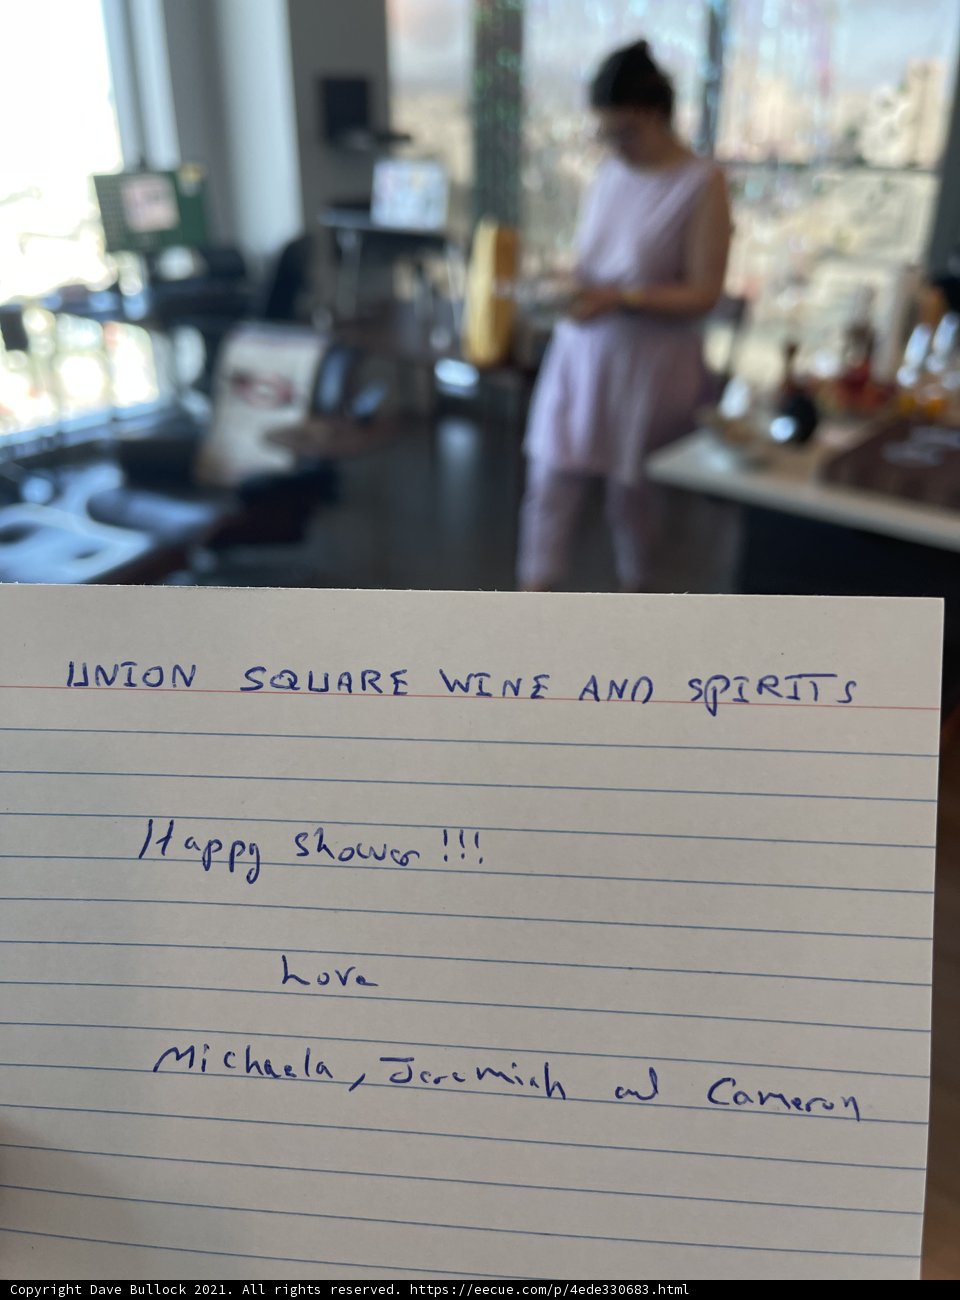 UNION SQUARE WINE AND SPIRITS
Happy shower!!!
Love
Michaela, Jeremiah and Cameron
Copyright Dave Bullock 2021. All rights reserved. https://eecue.com/p/4ede330683.html